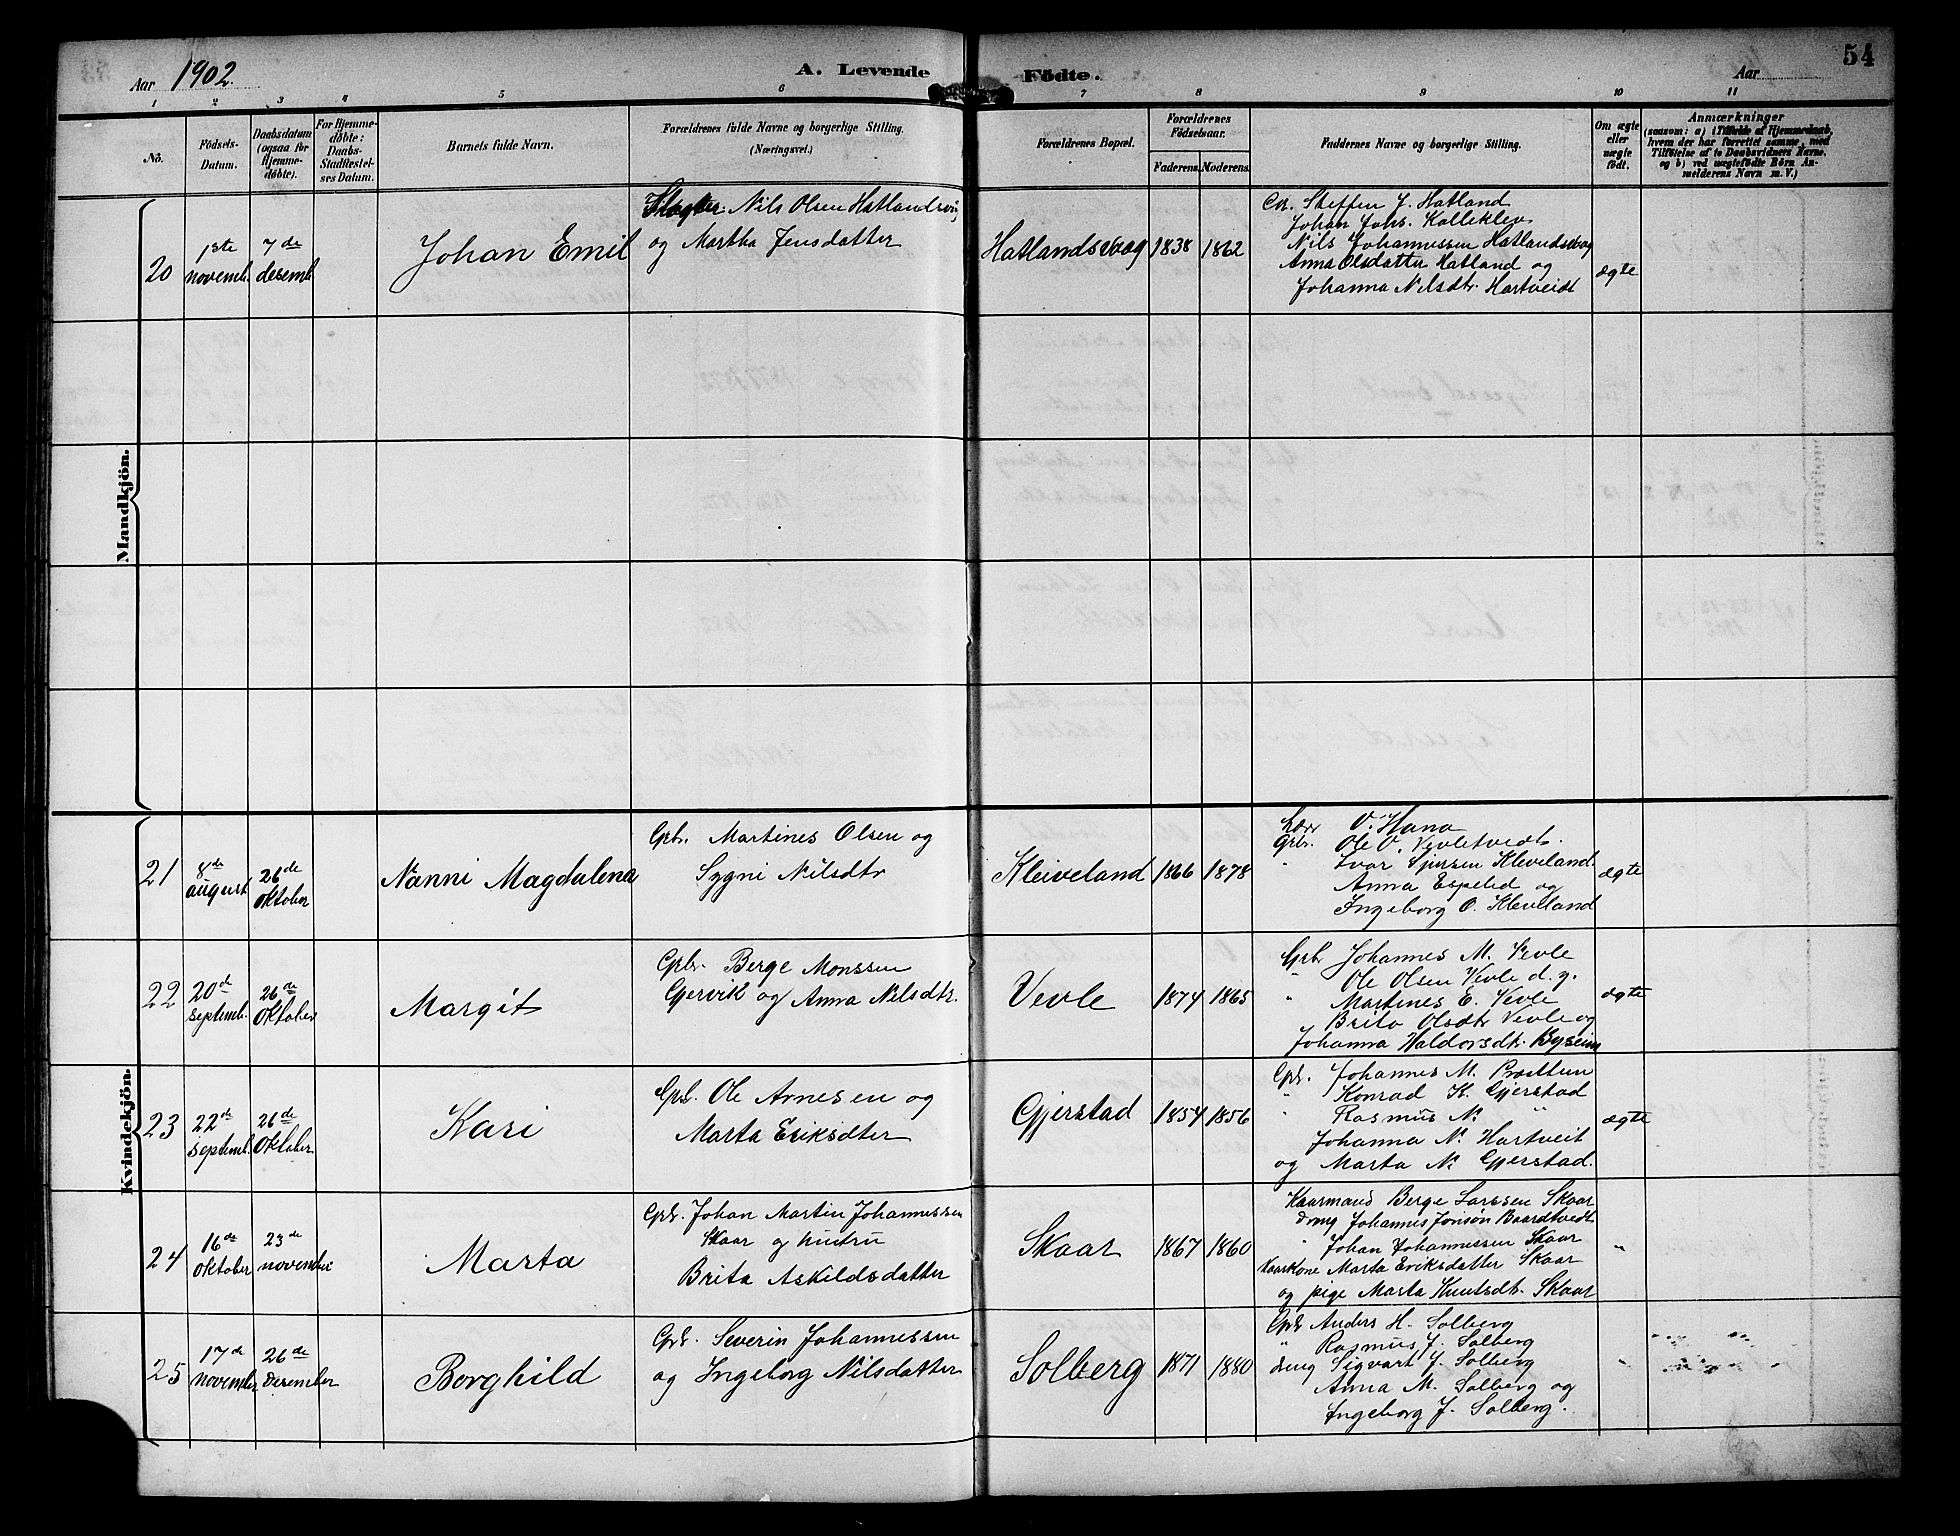 54
Aar 1902.
A. Levende Födte.
Aar
1 2 3 4 5 6 7 8 9 10 11
No.
Födsels-Datum.
Daabsdatum (ogsaa for Hjemmedöbte).
For Hjemmedöbte: Daabs-Stadfestelses Datum.
Barnets fulde Navn.
Forældrenes fulde Navne og borgerlige Stilling.
(Næringsvei.)
Forældrenes Bopæl.
Forældrenes Födselsaar.
Faderens. Moderens.
Faddernes Navne og borgerlige Stilling.
Om ægte eller uægte födt.
Anmærkninger
(saasom: a) i Tilfælde af Hjemmedaab, hvem der har forrettet samme, med Tilföielse af to Daabsvidners Navne, og b) ved uægtefödte Börn Anmelderens Navn m. V.)
Mandkjön.
20
1ste novemb.
7de desemb.
Johan Emil
Nils Olsen Hatlandsvåg
og Martha Jensdatter
Hatlandsvaag
1838
1862
Steffen J. Hatland
Johan Johs. Kalleklev
Nils Johannessen Hatlandsvaag
Anna Olsdatter Hatland og
Johanna Nilsdtr. Hartveidt
ægte
Kvindekjön.
21
8de august
26de Oktober
Nanni Magdalena
Gbr. Martines Olsen og
Sygni Nilsdtr
Kleiveland
1866
1878
Lærer O. Hana
Gbr. Ole O. Vevletvedt.
" Ivar Kleveland
Anna Espelid og
Ingeborg O. Kleveland
ægte
22
20de septemb.
26de Oktober
Margit
Gbr. Berge Monssen
Gjervik og Anna Nilsdtr.
Vevle
1874
1865
Gbr. Johannes M. Vevle
" Ole Olsen Vevle d. y.
" Martines E. Vevle
Brita Olsdtr Vevle og
Johanna Haldorsdtr. Byseim
ægte
23
22de septemb.
26de Oktober
Kari
Gbr. Ole Arnesen og
Marta Eriksdtter
Gjerstad
1854
1856
Gbr. Johannes M. Prestun
" Konrad K. Gjerstad
" Rasmus N. "
Johanna N. Hartveit
og Marta N. Gjerstad.
ægte
24
16de Oktober
23de november
Marta
Gbr. Johan Martin Johannessen
Skaar og hustru
Brita Askildsdatter
Skaar
1867
1860
Kaarmand Berge Larssen Skaar
dreng Johannes Jonsøn Baardtvedt
" Johan Johannessen Skaar
Kaarkone Marta Eriksdatter Skaar
og pige Marta Knutsdtr. Skaar
"
25
17de november
26de desember
Borghild
Gbr. Severin Johannessen
og Ingeborg Nilsdatter
Solberg
1871
1880
Gbr Anders H. Solberg
" Rasmus J. Solberg
dreng Sigvart J. Solberg
Anna M. Solberg og
Ingeborg J. Solberg.
"